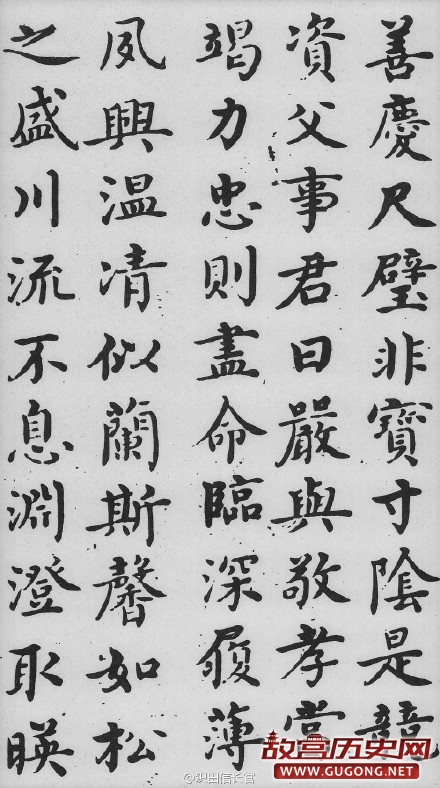 善慶尺璧非寶寸陰是競
資父事君曰嚴與敬孝當
竭力忠則盡命臨深履薄
夙興温凊似蘭斯馨如松
之盛川流不息淵澄取暎
故宫历史网
WWW.GUGONG.NET